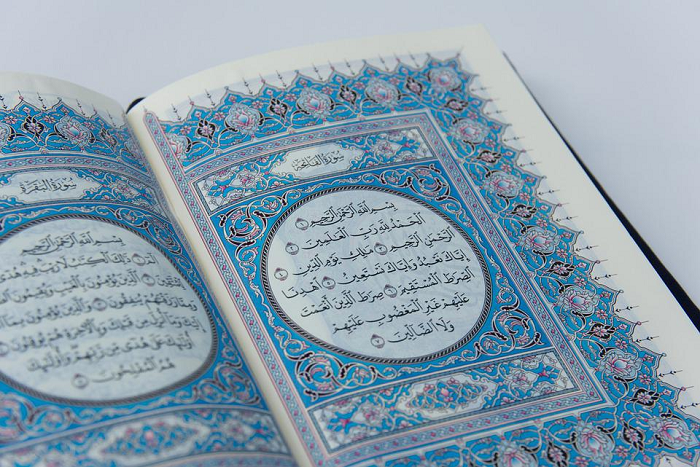 سُورَةُ الْفَاتِحَةِ
بِسْمِ اللَّهِ الرَّحْمَٰنِ الرَّحِيمِ ١
الْحَمْدُ لِلَّهِ رَبِّ الْعَالَمِينَ ٢
الرَّحْمَٰنِ الرَّحِيمِ ٣ مَالِكِ يَوْمِ الدِّينِ ٤
إِيَّاكَ نَعْبُدُ وَإِيَّاكَ نَسْتَعِينُ ٥ اهْدِنَا
الصِّرَاطَ الْمُسْتَقِيمَ ٦ صِرَاطَ الَّذِينَ أَنْعَمْتَ
عَلَيْهِمْ غَيْرِ الْمَغْضُوبِ عَلَيْهِمْ
وَلَا الضَّالِّينَ ٧
سُورَةُ الْبَقَرَةِ
بِسْمِ اللَّهِ الرَّحْمَٰنِ الرَّحِيمِ
الم ١ ذَٰلِكَ الْكِتَابُ لَا رَيْبَ فِيهِ
الَّذِينَ يُؤْمِنُونَ بِالْغَيْبِ
وَمِمَّا رَزَقْنَاهُمْ يُنْفِقُونَ ٣ وَالَّذِينَ يُؤْمِنُونَ
أُولَٰئِكَ عَلَىٰ هُدًى مِنْ رَبِّهِمْ وَأُولَٰئِكَ
هُمُ الْمُفْلِحُونَ ٥